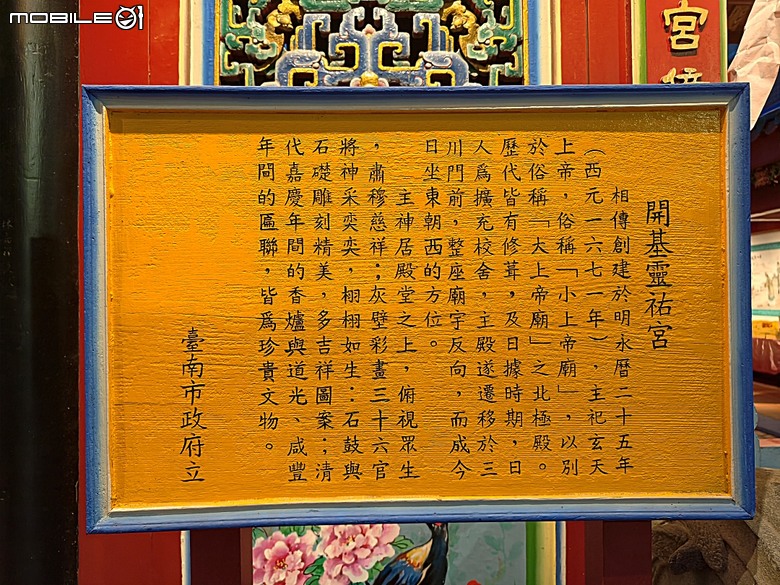 MOBILE01
宮
開基靈祐宮
相傳創建於明永曆二十五年
（西元一六七一年），主祀玄天
上帝，俗稱「小上帝廟」，以別
於俗稱「大上帝廟」之北極殿。
歷代皆有修葺，及日據時期，日
人爲擴充校舍，主殿遂遷移於三
川門前，整座廟宇反向，而成今
日坐東朝西的方位。
主神居殿堂之上，俯視眾生
，肅穆慈祥；灰壁彩畫三十六官
將神采奕奕，栩栩如生：石鼓與
石礎雕刻精美，多吉祥圖案；清
代嘉慶年間的香爐與道光、咸豐
年間的匾聯，皆爲珍貴文物。
臺南市政府立